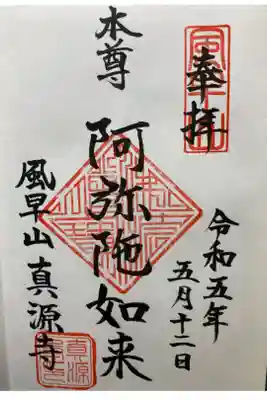 奉拝
本尊
阿弥陀如来
風早山真源寺
令和五年
五月十二日